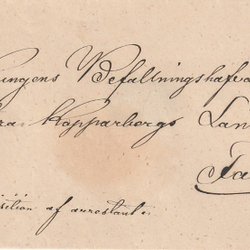 ungens Befallningshafva
ra Kopparbergs Lan
Fa
sition af arrestant